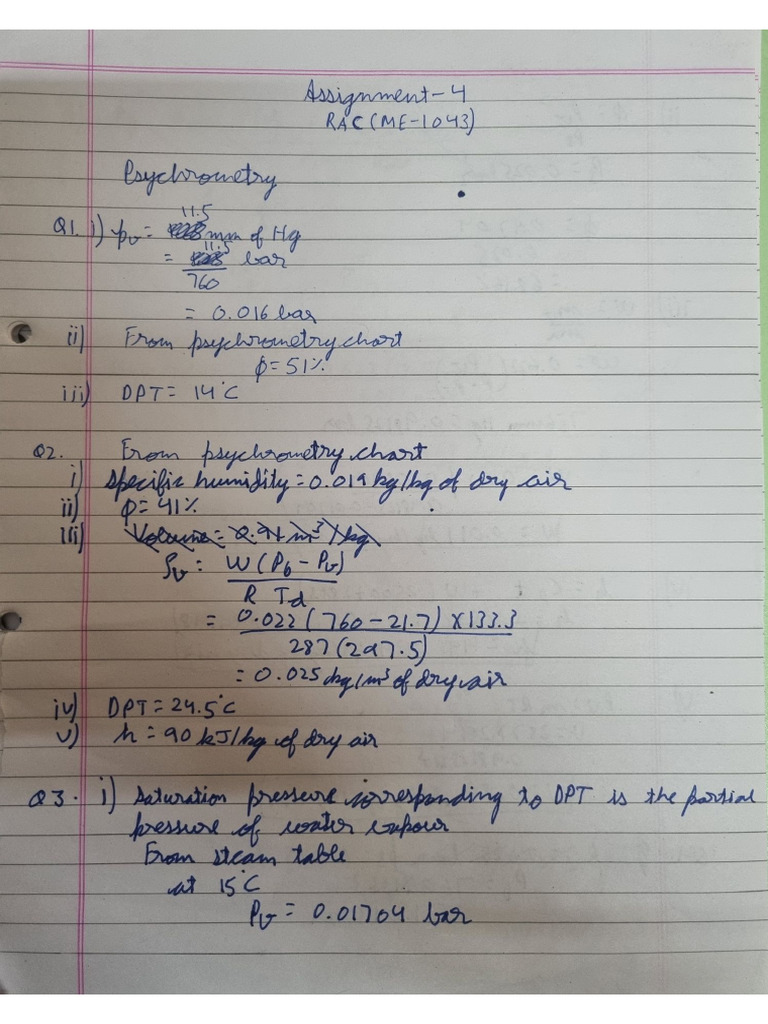 Assignment-4
RAC (ME-1043)
Psychrometry
11.5
Q1. i) pv = mm of Hg
11.5
= bar
760
= 0.016 bar
ii) From psychrometry chart
φ = 51%
iii) DPT = 14°C
Q2. From psychrometry chart
i) specific humidity = 0.019 kg/kg of dry air
ii) φ = 41%
iii) Volume = 0.91 m³/kg
ρv = W (Pb - Pv)
R Td
= 0.022 (760 - 21.7) X 133.3
287 (297.5)
= 0.025 kg/m³ of dry air
iv) DPT = 24.5°C
v) h = 90 kJ/kg of dry air
Q3. i) Saturation pressure corresponding to DPT is the partial
pressure of water vapour
From steam table
at 15°C
Pv = 0.01704 bar